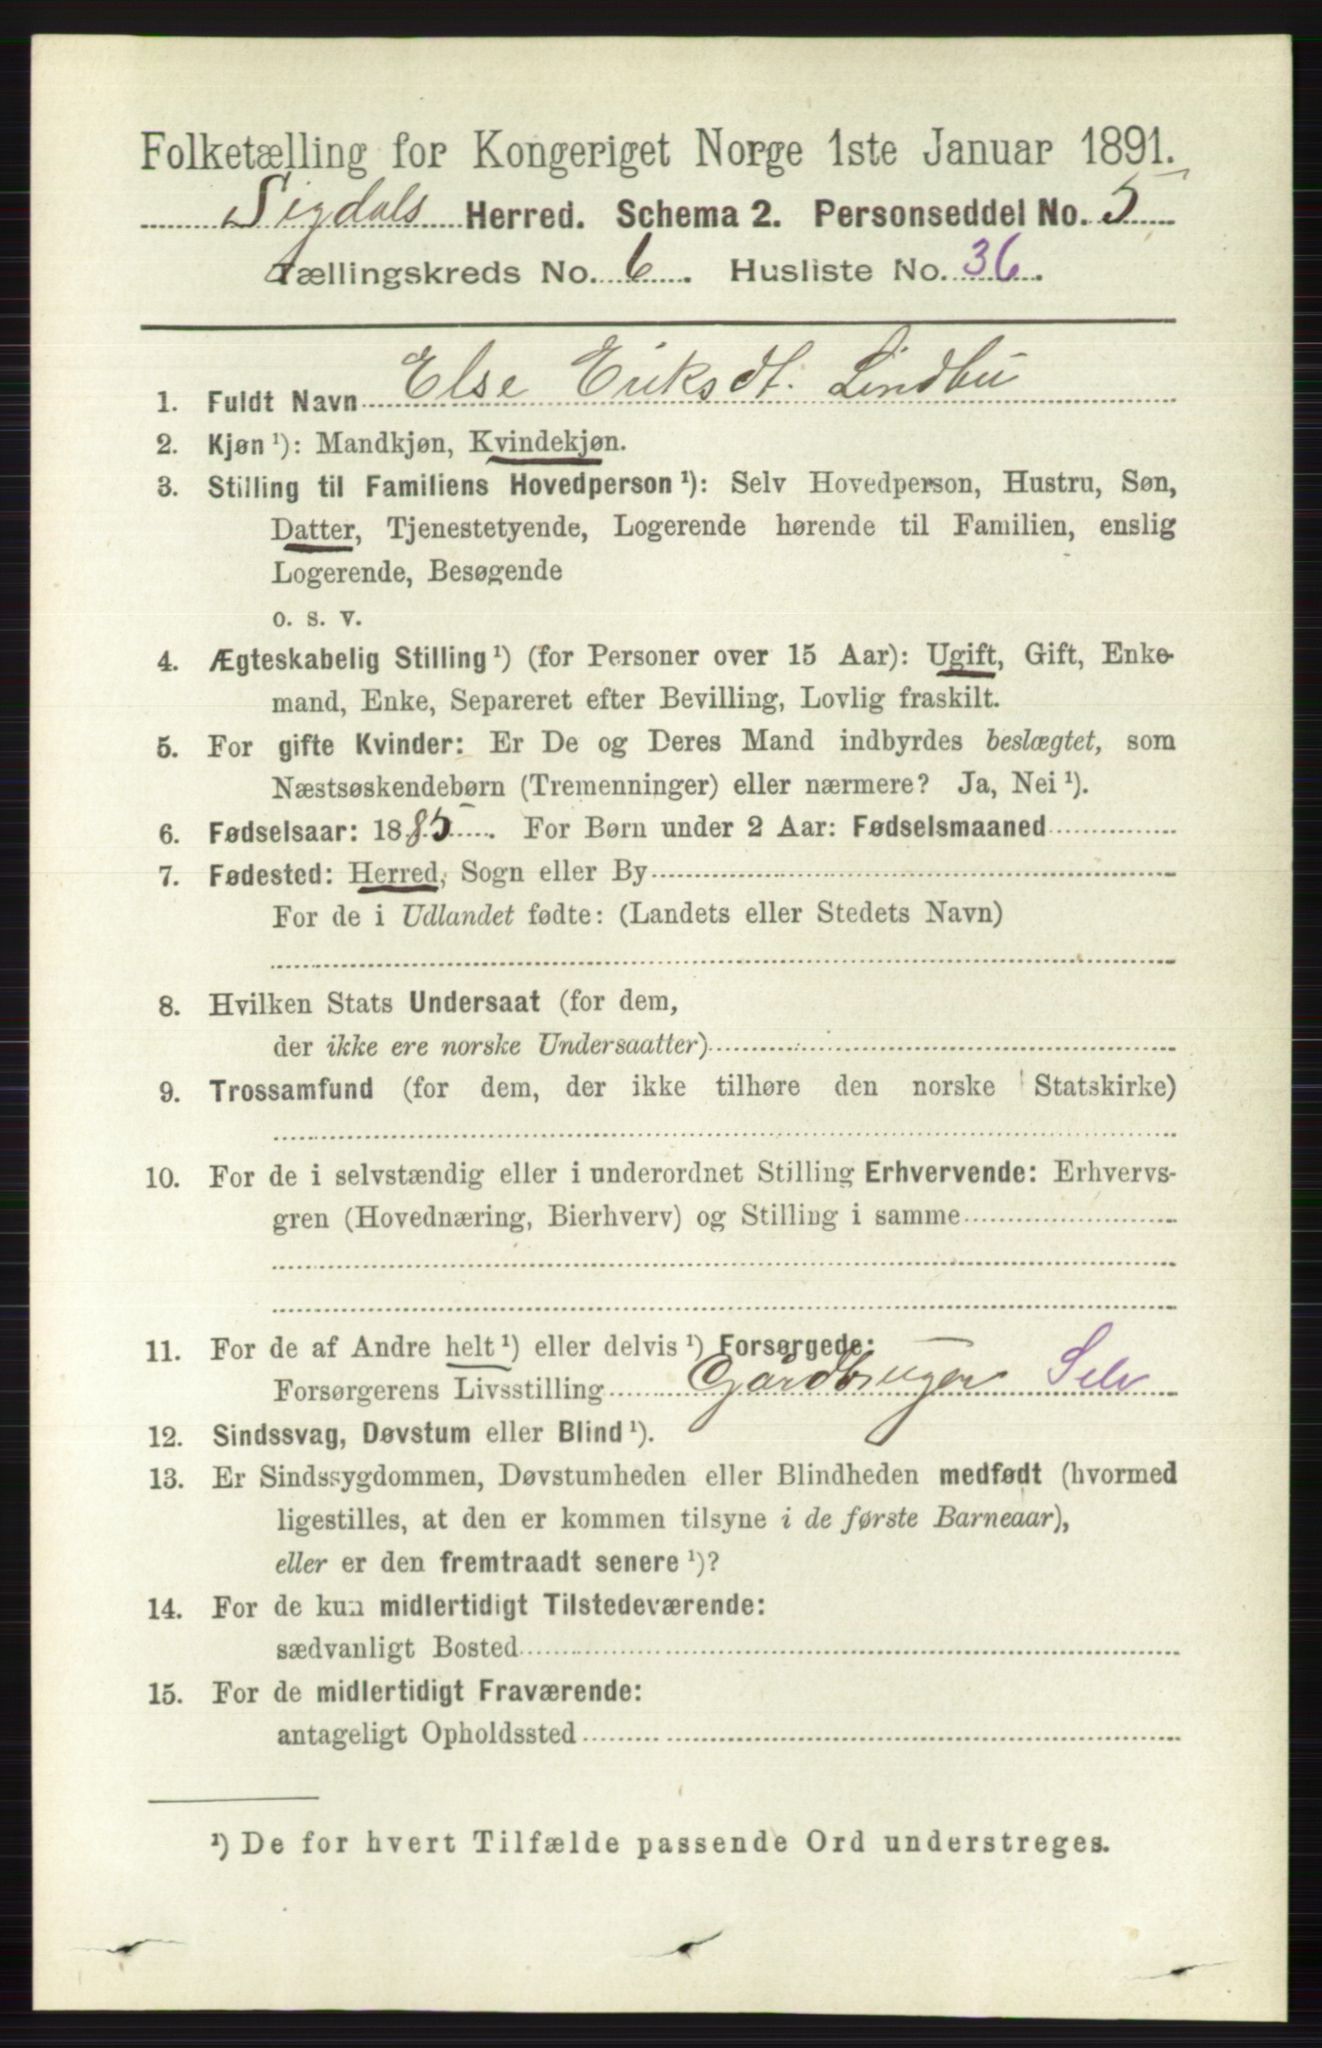 Folketælling for Kongeriget Norge 1ste Januar 1891.
Sigdals Herred. Schema 2. Personseddel No. 5
Tællingskreds No. 6. Husliste No. 36.
1. Fuldt Navn Else Eriksdt. Lindbu
2. Kjøn ¹): Mandkjøn, Kvindekjøn.
3. Stilling til Familiens Hovedperson ¹): Selv Hovedperson, Hustru, Søn,
Datter, Tjenestetyende, Logerende hørende til Familien, enslig
Logerende, Besøgende
o. s. v.
4. Ægteskabelig Stilling ¹) (for Personer over 15 Aar): Ugift, Gift, Enke-
mand, Enke, Separeret efter Bevilling, Lovlig fraskilt.
5. For gifte Kvinder: Er De og Deres Mand indbyrdes beslægtet, som
Næstsøskendebørn (Tremenninger) eller nærmere? Ja, Nei ¹).
6. Fødselsaar: 1885. For Børn under 2 Aar: Fødselsmaaned
7. Fødested: Herred, Sogn eller By
For de i Udlandet fødte: (Landets eller Stedets Navn)
8. Hvilken Stats Undersaat (for dem,
der ikke ere norske Undersaatter)
9. Trossamfund (for dem, der ikke tilhøre den norske Statskirke)
10. For de i selvstændig eller i underordnet Stilling Erhvervende: Erhvervs-
gren (Hovednæring, Bierhverv) og Stilling i samme
11. For de af Andre helt ¹) eller delvis ¹) Forsørgede:
Forsørgerens Livsstilling Gårdbruger Selv
12. Sindssvag, Døvstum eller Blind ¹).
13. Er Sindssygdommen, Døvstumheden eller Blindheden medfødt (hvormed
ligestilles, at den er kommen tilsyne i de første Barneaar),
eller er den fremtraadt senere ¹)?
14. For de kun midlertidigt Tilstedeværende:
sædvanligt Bosted
15. For de midlertidigt Fraværende:
antageligt Opholdssted
¹) De for hvert Tilfælde passende Ord understreges.